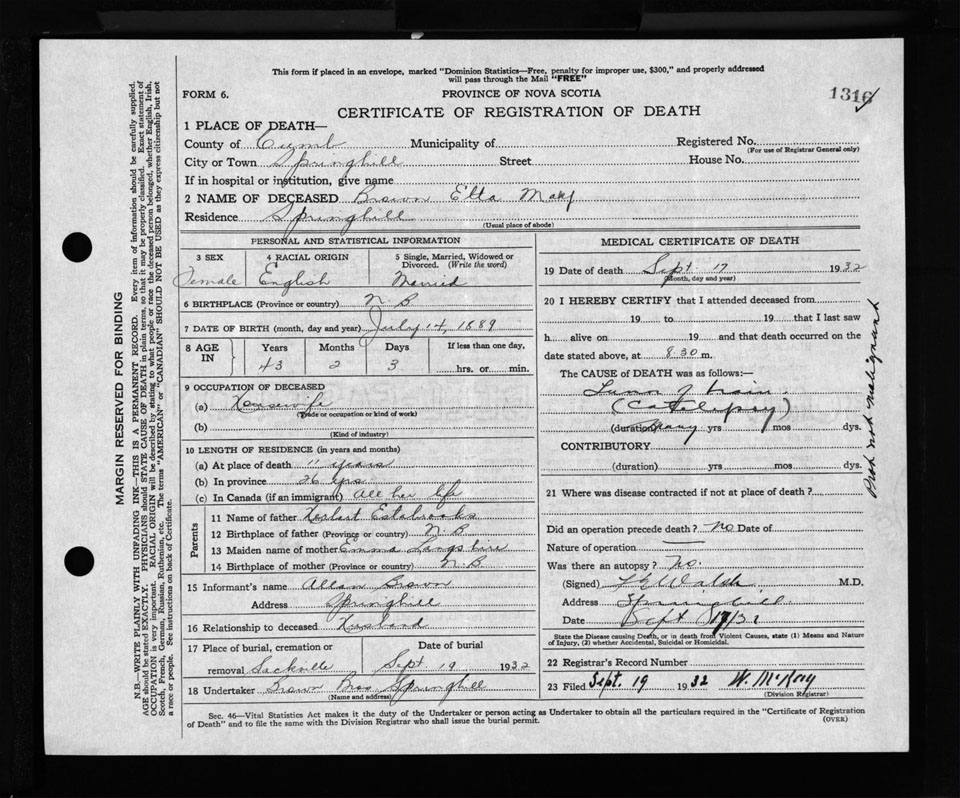 This form if placed in an envelope, marked "Dominion Statistics—Free, penalty for improper use, $300," and properly addressed
will pass through the Mail "FREE"
FORM 6.
PROVINCE OF NOVA SCOTIA
1316
CERTIFICATE OF REGISTRATION OF DEATH
1 PLACE OF DEATH—
County of Cumb Municipality of Registered No.
(For use of Registrar General only)
City or Town Springhill Street House No.
If in hospital or institution, give name
2 NAME OF DECEASED Brown Etta May
Residence Springhill
(Usual place of abode)
PERSONAL AND STATISTICAL INFORMATION
3 SEX 4 RACIAL ORIGIN 5 Single, Married, Widowed or Divorced. (Write the word)
Female English Married
6 BIRTHPLACE (Province or country) N B
7 DATE OF BIRTH (month, day and year) July 14, 1889
8 AGE IN Years Months Days If less than one day,
43 2 3 hrs. or min.
9 OCCUPATION OF DECEASED
(a) Housewife
(Trade or occupation or kind of work)
(b)
(Kind of industry)
10 LENGTH OF RESIDENCE (in years and months)
(a) At place of death 11 years
(b) In province 26 yrs
(c) In Canada (if an immigrant) All her life
Parents
11 Name of father Herbert Estabrooks
12 Birthplace of father (Province or country) N.B
13 Maiden name of mother Emma
14 Birthplace of mother (Province or country) N.B
15 Informant's name Allan Brown
Address Springhill
16 Relationship to deceased Husband
17 Place of burial, cremation or Date of burial
removal Sackville Sept 19 1932
18 Undertaker Brown Bros Springhill
(Name and address)
MEDICAL CERTIFICATE OF DEATH
19 Date of death Sept 17 1932
(Month, day and year)
20 I HEREBY CERTIFY that I attended deceased from
19 to 19 that I last saw
h alive on 19 and that death occurred on the
date stated above, at 8.30 m.
The CAUSE OF DEATH was as follows:—
Tumor of brain.
(Catalepsy)
(duration) many yrs mos dys.
CONTRIBUTORY
(duration) yrs mos dys.
Prob not malignant
21 Where was disease contracted if not at place of death?
Did an operation precede death? No Date of
Nature of operation —
Was there an autopsy? No.
(Signed) Walsh M.D.
Address Springhill
Date Sept 17/32
State the Disease causing Death, or in death from Violent Causes, state (1) Means and Nature
of Injury, (2) whether Accidental, Suicidal or Homicidal.
22 Registrar's Record Number
23 Filed Sept. 19 1932 W. McKay
(Division Registrar)
Sec. 46—Vital Statistics Act makes it the duty of the Undertaker or person acting as Undertaker to obtain all the particulars required in the "Certificate of Registration
of Death" and to file the same with the Division Registrar who shall issue the burial permit.
(OVER)
MARGIN RESERVED FOR BINDING
N.B.—WRITE PLAINLY WITH UNFADING INK—THIS IS A PERMANENT RECORD. Every item of information should be carefully supplied.
AGE should be stated EXACTLY. PHYSICIANS should STATE CAUSE OF DEATH in plain terms, so that it may be properly classified. Exact statement of
OCCUPATION is very important. RACIAL ORIGIN will be described by stating to what people or race the deceased person belonged, whether English, Irish,
Scotch, French, German, Russian, Ruthenian, etc. The terms "AMERICAN" or "CANADIAN" SHOULD NOT BE USED as they express citizenship but not
a race or people. See instructions on back of Certificate.